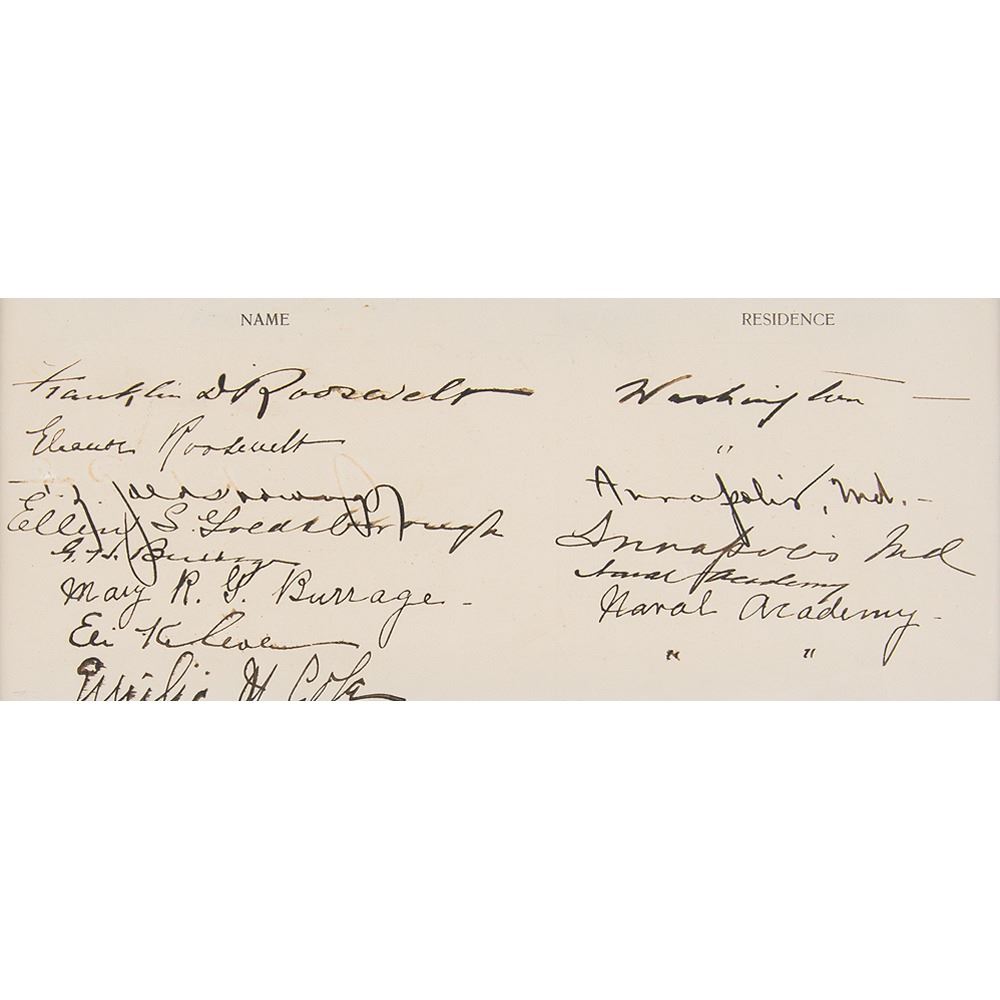 NAME RESIDENCE
Franklin D Roosevelt Washington —
Eleanor Roosevelt "
Goldsborough Annapolis, Md. –
Ellen S. Goldsborough Annapolis Md
G. H. Burrage Naval Academy
Mary R. G. Burrage – Naval Academy –
Eli K Cole " "
Cole